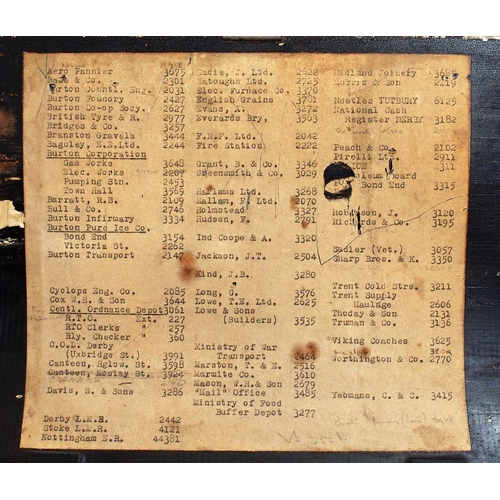 Aero Pannier 3675
Bass & Co. 2301
Burton Constl. Eng. 2031
Burton Foundry 2427
Burton Co-op Socy. 2627
British Tyre & R. 2977
Bridges & Co. 3257
Branston Gravels 3444
Baguley, E.E.Ltd. 2244
Burton Corporation
Gas Works 3648
Elec. Works 2207
Pumping Stn. 2453
Town Hall 3569
Barratt, R.B. 2109
Bull & Co. 2746
Burton Infirmary 3334
Burton Pure Ice Co.
Bond End 3154
Victoria St. 2262
Burton Transport 2147
Cyclops Eng. Co. 2085
Cox W.H. & Son 3644
Centl. Ordnance Depot 3061
R.T.O. Ext. 227
RTO Clerks " 257
Rly. Checker " 360
C.O.D. Derby
(Uxbridge St.) 3991
Canteen, Hglow. St. 3598
Canteen, Mosley St. 3924
Davis, S. & Sons 3286
Derby L.M.R. 2442
Stoke L.M.R. 4121
Nottingham E.R. 44381
Eadie, J. Ltd. 2622
Eatoughs Ltd. 2725
Elec. Furnace Co. 3370
English Grains 3781
Evans, A. 3272
Everards Bry. 3563
F.N.F. Ltd. 2042
Fire Station 2222
Grant, B. & Co. 3346
Greensmith & Co. 3029
Hallams Ltd. 3268
Hallam, F. Ltd. 2070
Holmstead 3327
Hudson, F. 2791
Ind Coope & A. 3320
Jackson, J.T. 2504
Kind, J.B. 3280
Long, G. 3576
Lowe, T.E. Ltd. 2625
Lowe & Sons
(Builders) 3535
Ministry of War
Transport 2464
Marston, T. & E. 2516
Marmite Co. 3610
Mason, W.H.& Son 2679
"Mail" Office 3485
Ministry of Food
Buffer Depot 3277
Midland Joinery 3685
Morris & Son 2119
Nestles TUTBURY 6125
National Cash
Register DERBY 3182
Peach & Co. 2102
Pirelli Ltd. 2911
311
Petroleum Board
Bond End 3315
Robinson, J. 3120
Richards & Co. 3195
Sadler (Vet.) 3057
Sharp Bros. & K. 3350
Trent Cold Strs. 3211
Trent Supply
Haulage 2606
Thoday & Son 2131
Truman & Co. 3136
Viking Coaches 3625
Worthington & Co. 2770
Yeomans, C. & C. 3415